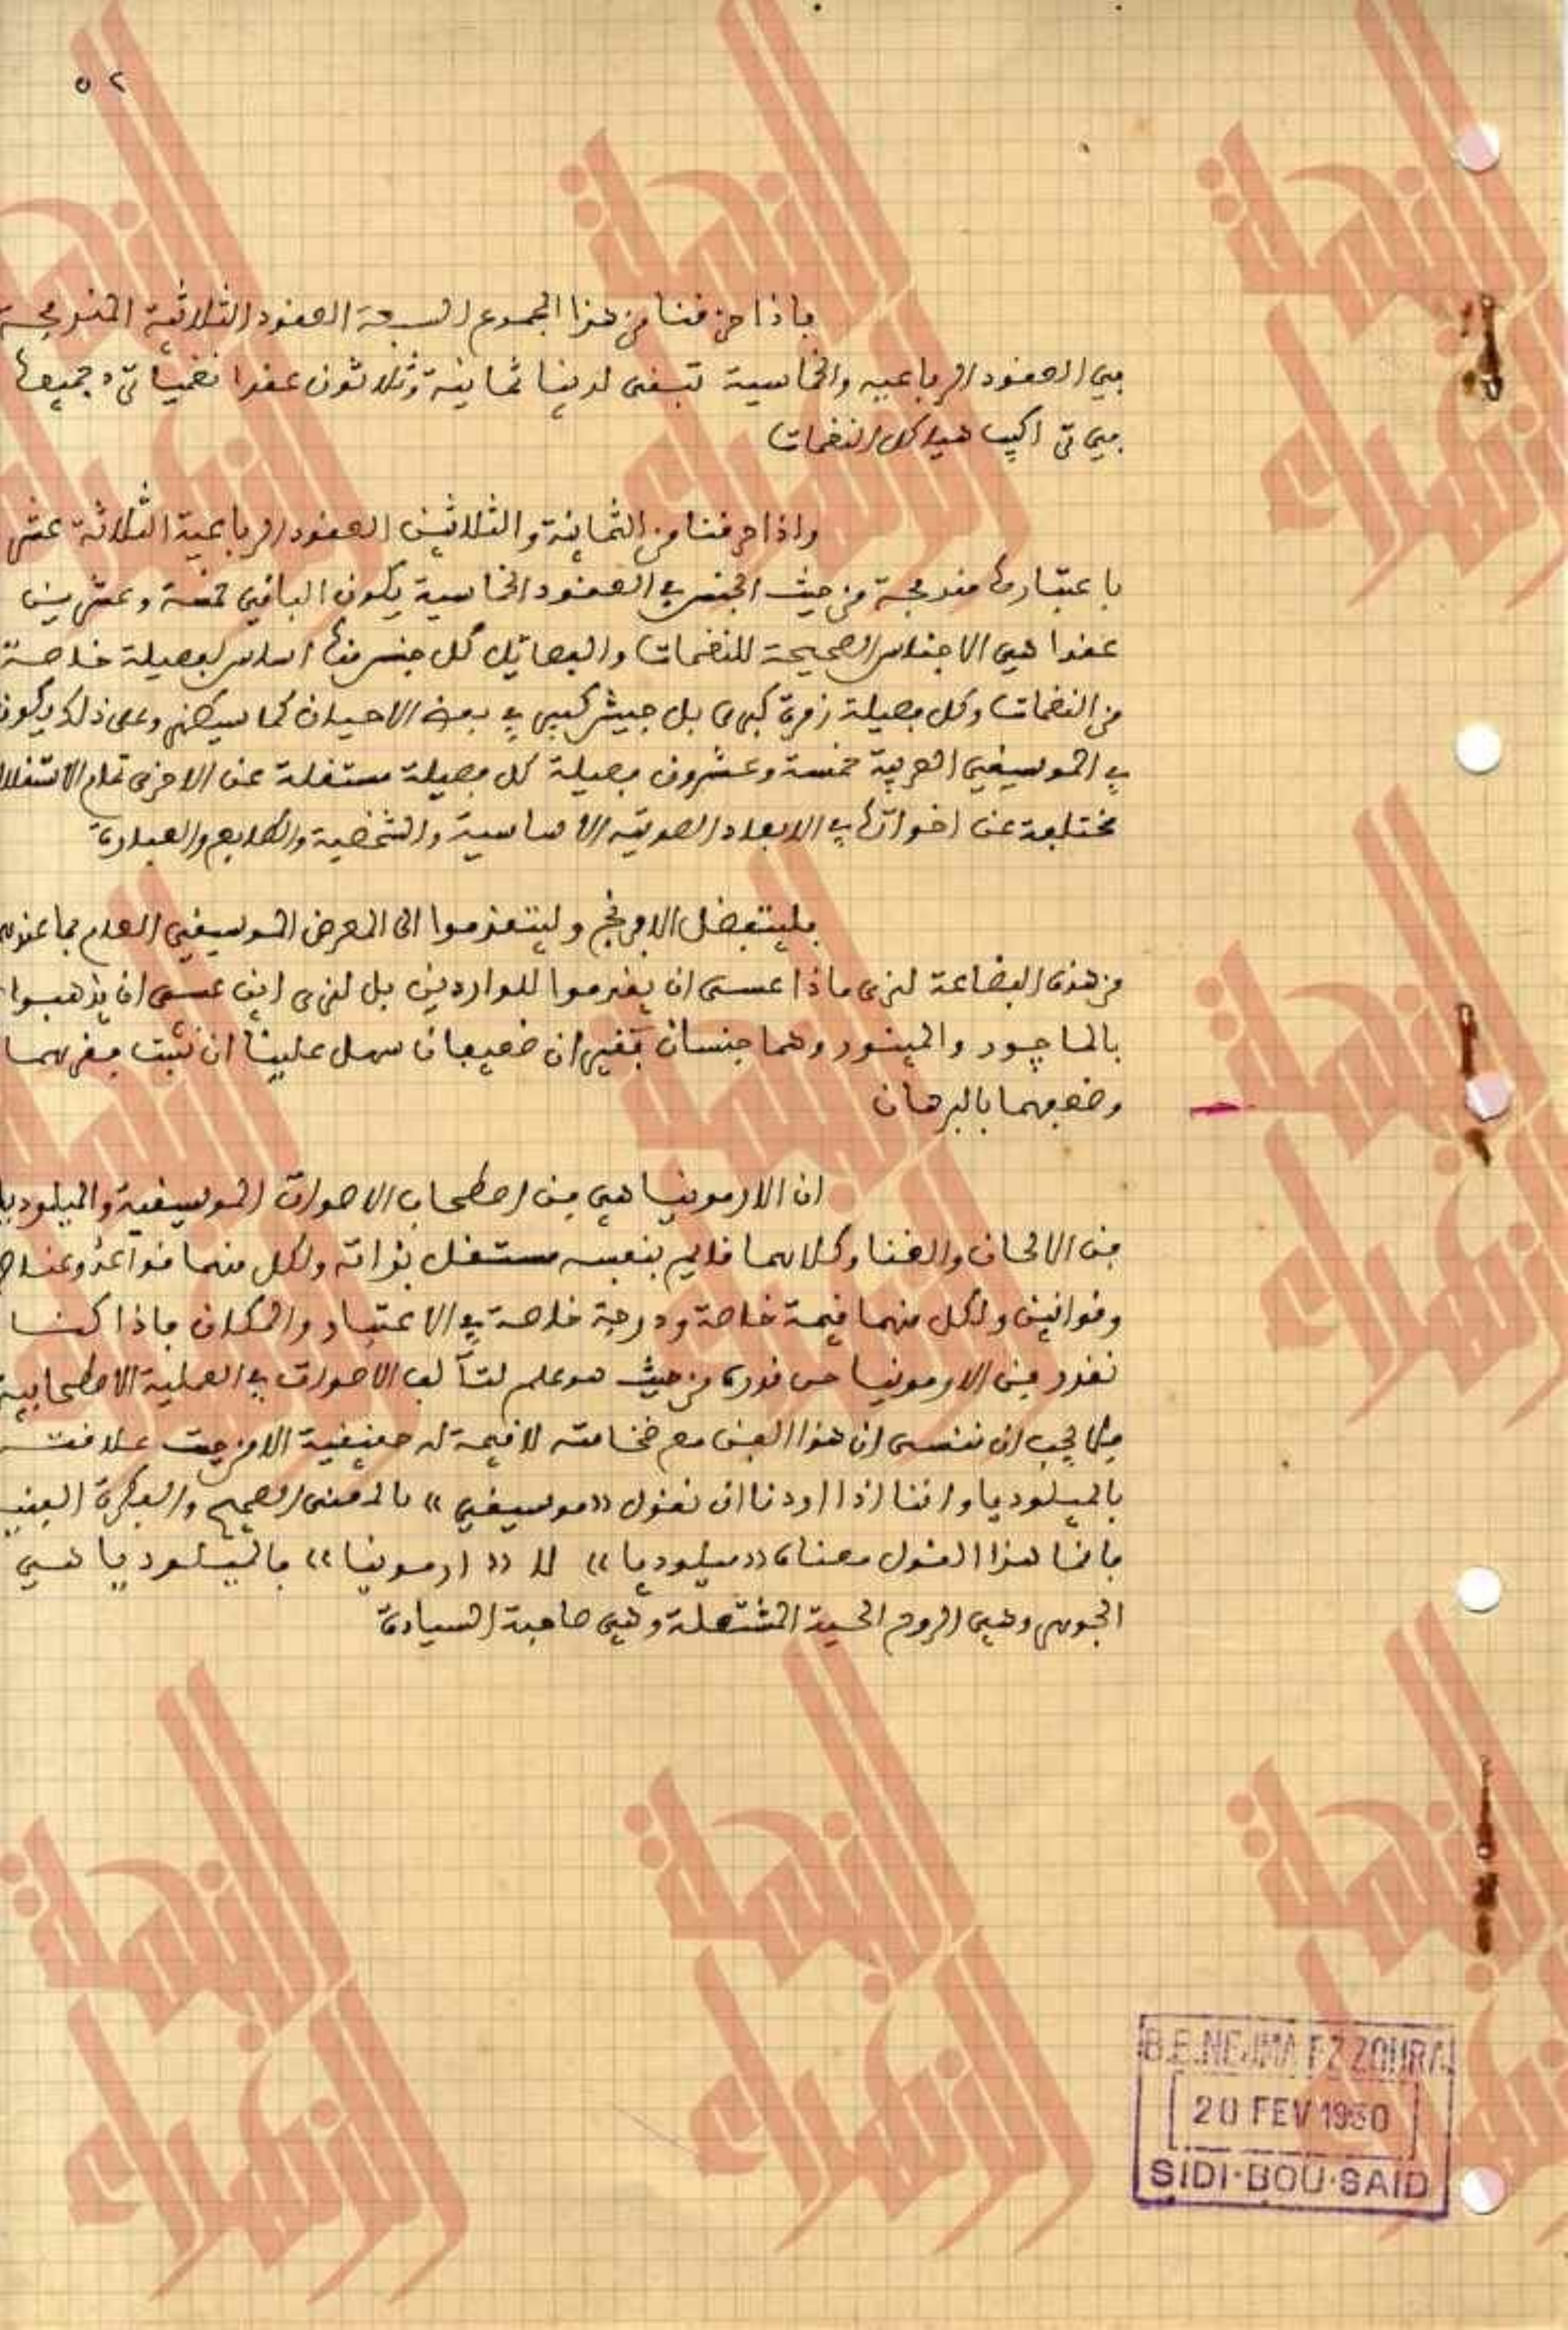 ٥٢
فاذا حذفنا من هذا المجموع السبعة العقود الثلاثية المندمجة
في العقود الرباعية والخماسية تبقى لدينا ثمانية وثلاثون عقدا نغميا ترد جميعها
في تراكيب هياكل النغمات
واذا حذفنا من الثمانية والثلاثين العقود الرباعية الثلاثة عشر
باعتبارها مندمجة من حيث الجنس في العقود الخماسية يكون الباقي خمسة وعشرين
عقدا هي الاجناس الصحيحة للنغمات والفصائل كل جنس منها اساس لفصيلة خاصة
من النغمات وكل فصيلة زمرة كبرى بل جيش كبير في بعض الاحيان كما سيظهر وعلى ذلك يكون
في الموسيقى العربية خمسة وعشرون فصيلة كل فصيلة مستقلة عن الاخرى تمام الاستقلال
مختلفة عن اخواتها في الابعاد الصوتية الاساسية والشخصية والطابع والعبارة
فليتفضل الافرنج وليتقدموا الى المعرض الموسيقي العام بما عندهم
من هذه البضاعة لنرى ماذا عسى ان يقدموا للواردين بل لنرى اين عسى ان يذهبوا
بالماجور والمينور وهما جنسان فقيران ضعيفان سهل علينا ان نثبت فقرهما
وضعفهما بالبرهان
ان الارمونيا هي فن اصطحاب الاصوات الموسيقية والميلوديا
فن الالحان والغنا وكلاهما قايم بنفسه مستقل بذاته ولكل منهما قواعد وعناصر
وقوانين ولكل منهما قيمة خاصة ودرجة خاصة في الاعتبار والمكان فاذا كنا
نقدر فن الارمونيا حق قدره من حيث هو علم لتآلف الاصوات في العملية الاصطحابية
فلا يجب ان ننسى ان هذا الفن مع ضخامته لا قيمة له حقيقية الا من حيث علاقته
بالميلوديا واننا اذا اردنا ان نقول «موسيقى» بالمعنى الصحيح والفكرة الفنية
فانما هذا القول معناه «ميلوديا» لا «ارمونيا» فالميلوديا هي
الجوهر وهي الروح الحية المشتعلة وهي صاحبة السيادة
B.E. NEJMA EZZOHRA
20 FEV 1930
SIDI-BOU-SAID